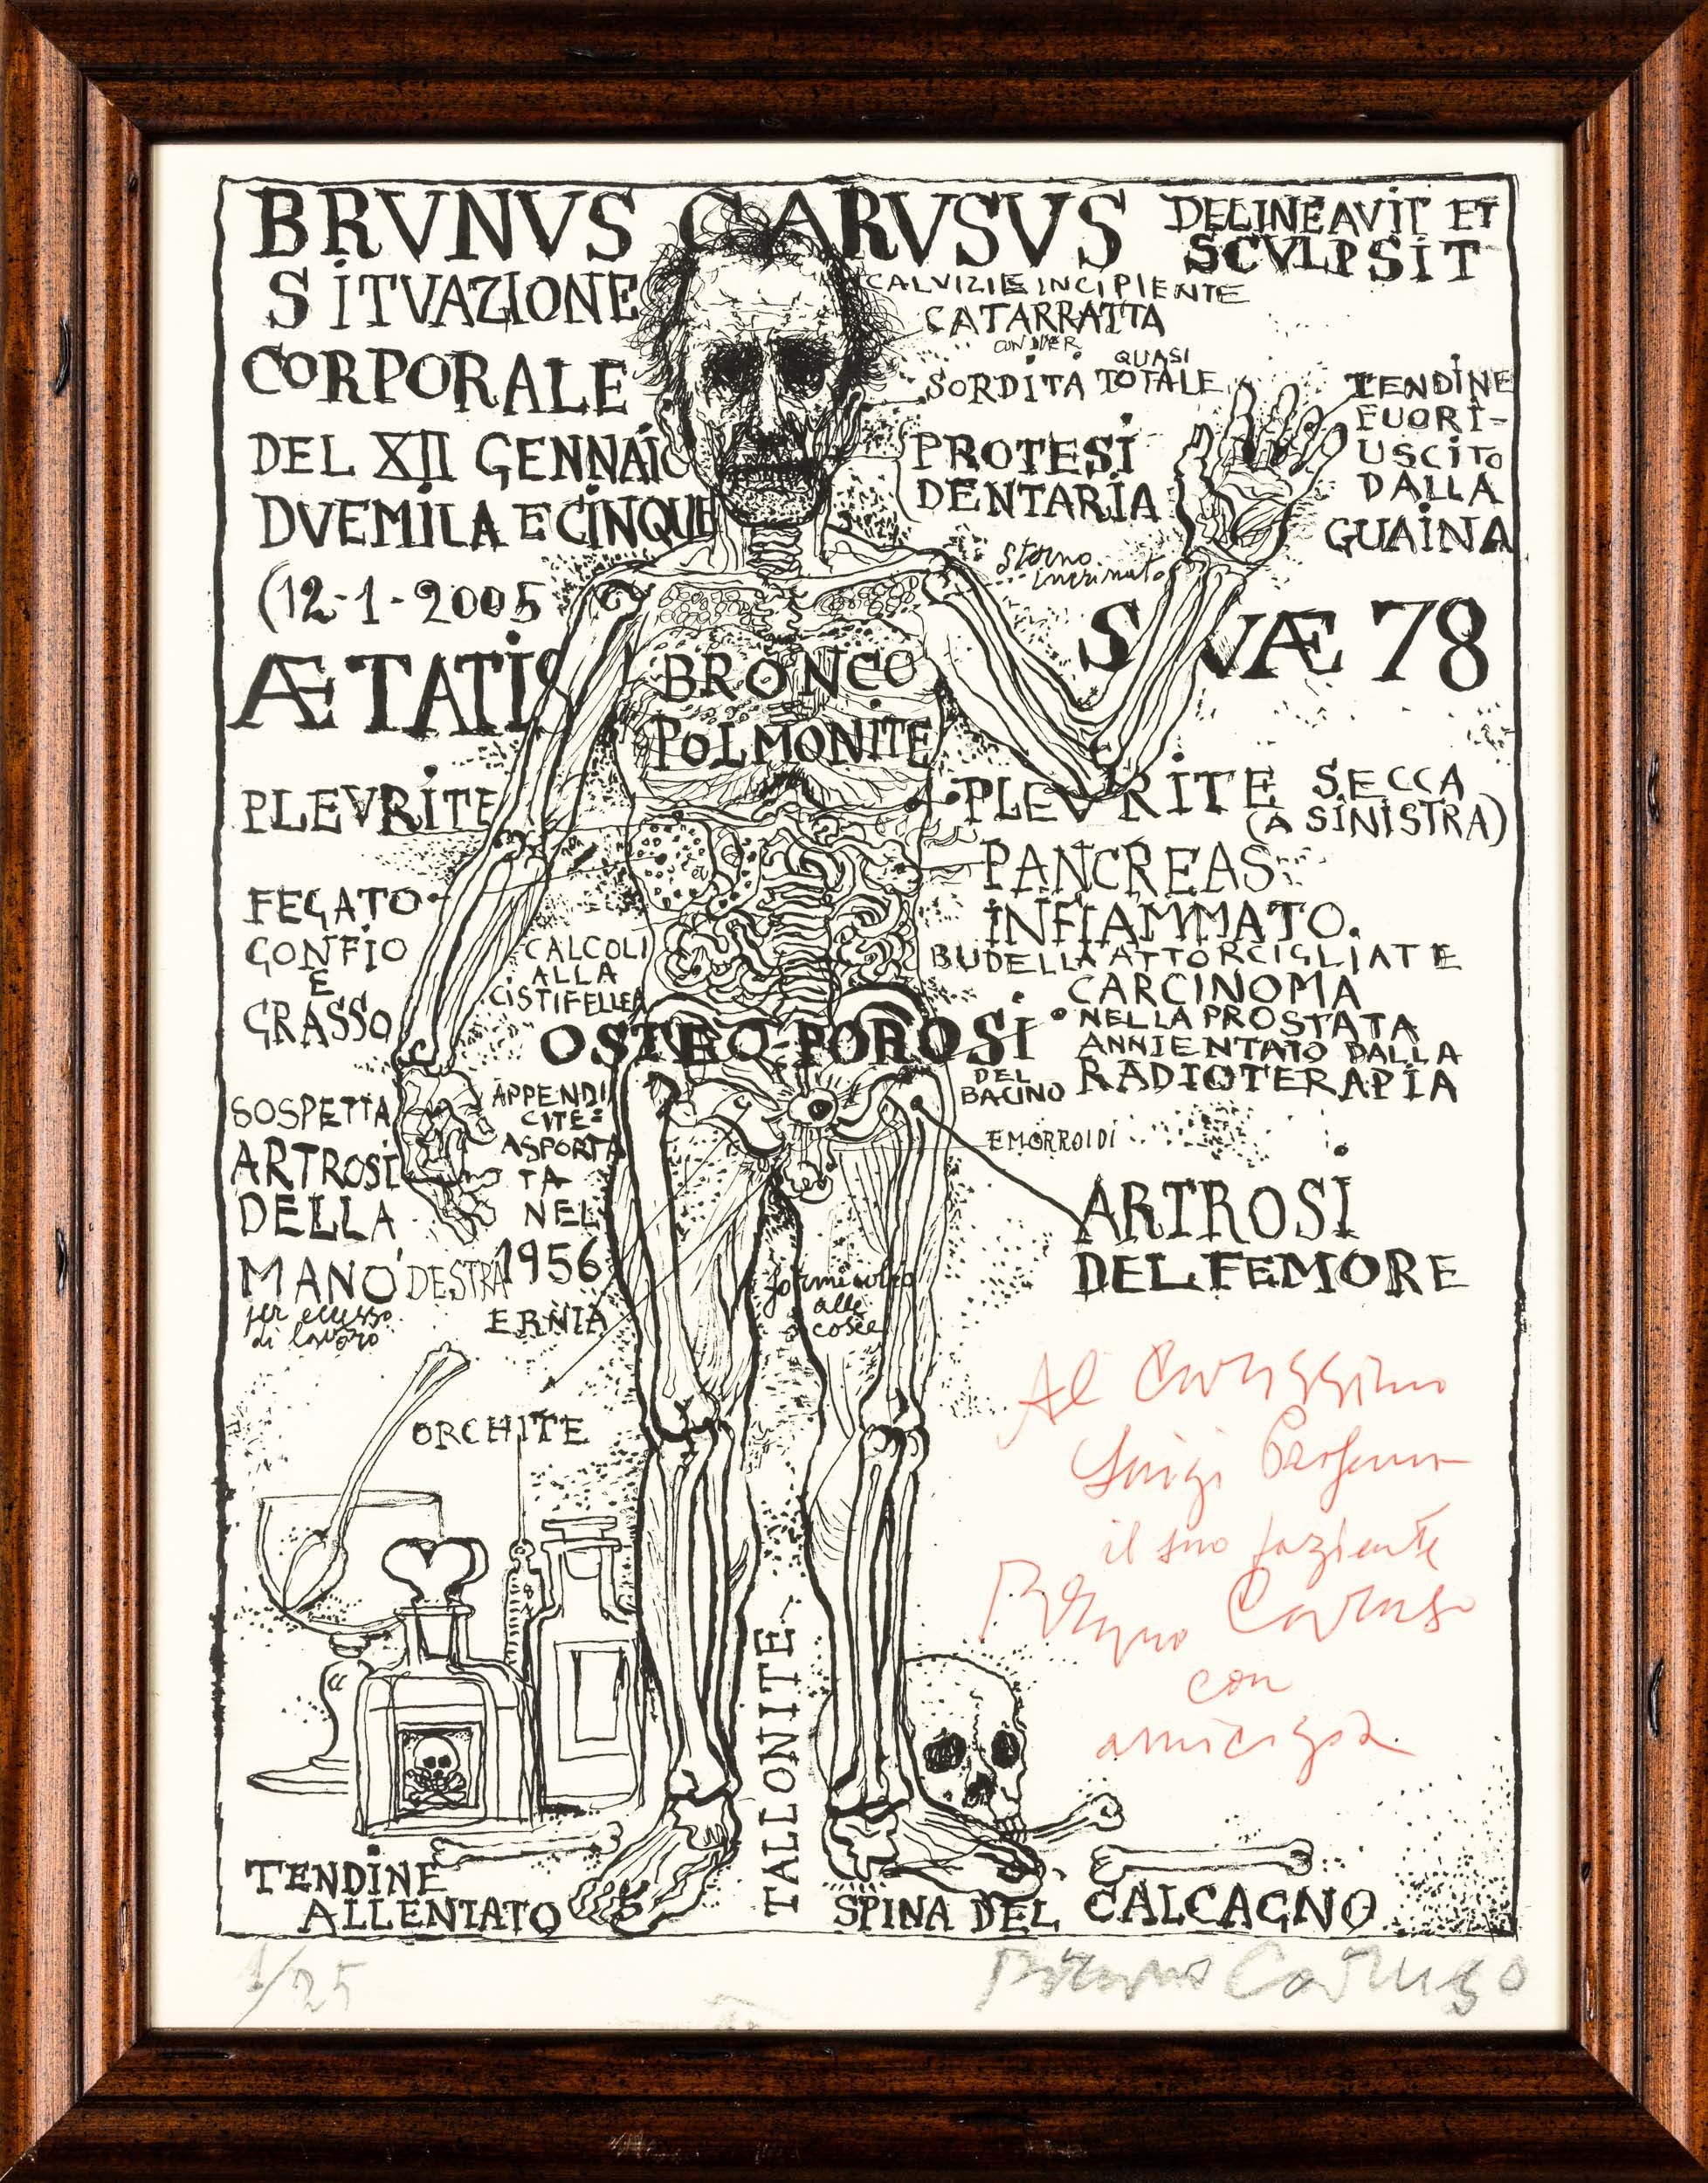 BRVNVS CARVSVS
DELINEAVIT ET
SCVLPSIT
SITVAZIONE
CORPORALE
DEL XII GENNAIO
DVEMILA E CINQUE
(12-1-2005
ÆTATIS SVÆ 78
CALVIZIE INCIPIENTE
CATARRATTA
SORDITA QUASI
TOTALE
PROTESI
DENTARIA
TENDINE
FUORI-
USCITO
DALLA
GUAINA
sterno
incrinato
BRONCO
POLMONITE
PLEVRITE
PLEVRITE SECCA
(A SINISTRA)
FEGATO
GONFIO
E
GRASSO
CALCOLI
ALLA
CISTIFELLEA
PANCREAS
INFIAMMATO.
BUDELLA ATTORCIGLIATE
CARCINOMA
NELLA PROSTATA
ANNIENTATO DALLA
RADIOTERAPIA
OSTEO-POROSI
DEL
BACINO
SOSPETTA
ARTROSI
DELLA
MANO DESTRA
per eccesso
di lavoro
APPENDI
CITE:
ASPORTA
TA
NEL
1956
ERNIA
EMORROIDI
ARTROSI
DEL FEMORE
formicolio
alle
cosce
ORCHITE
Al Carissimo
Luigi
il suo paziente
Bruno Caruso
con
amicizia
TALLONITE
TENDINE
ALLENTATO
SPINA DEL CALCAGNO
1/25
Bruno Caruso